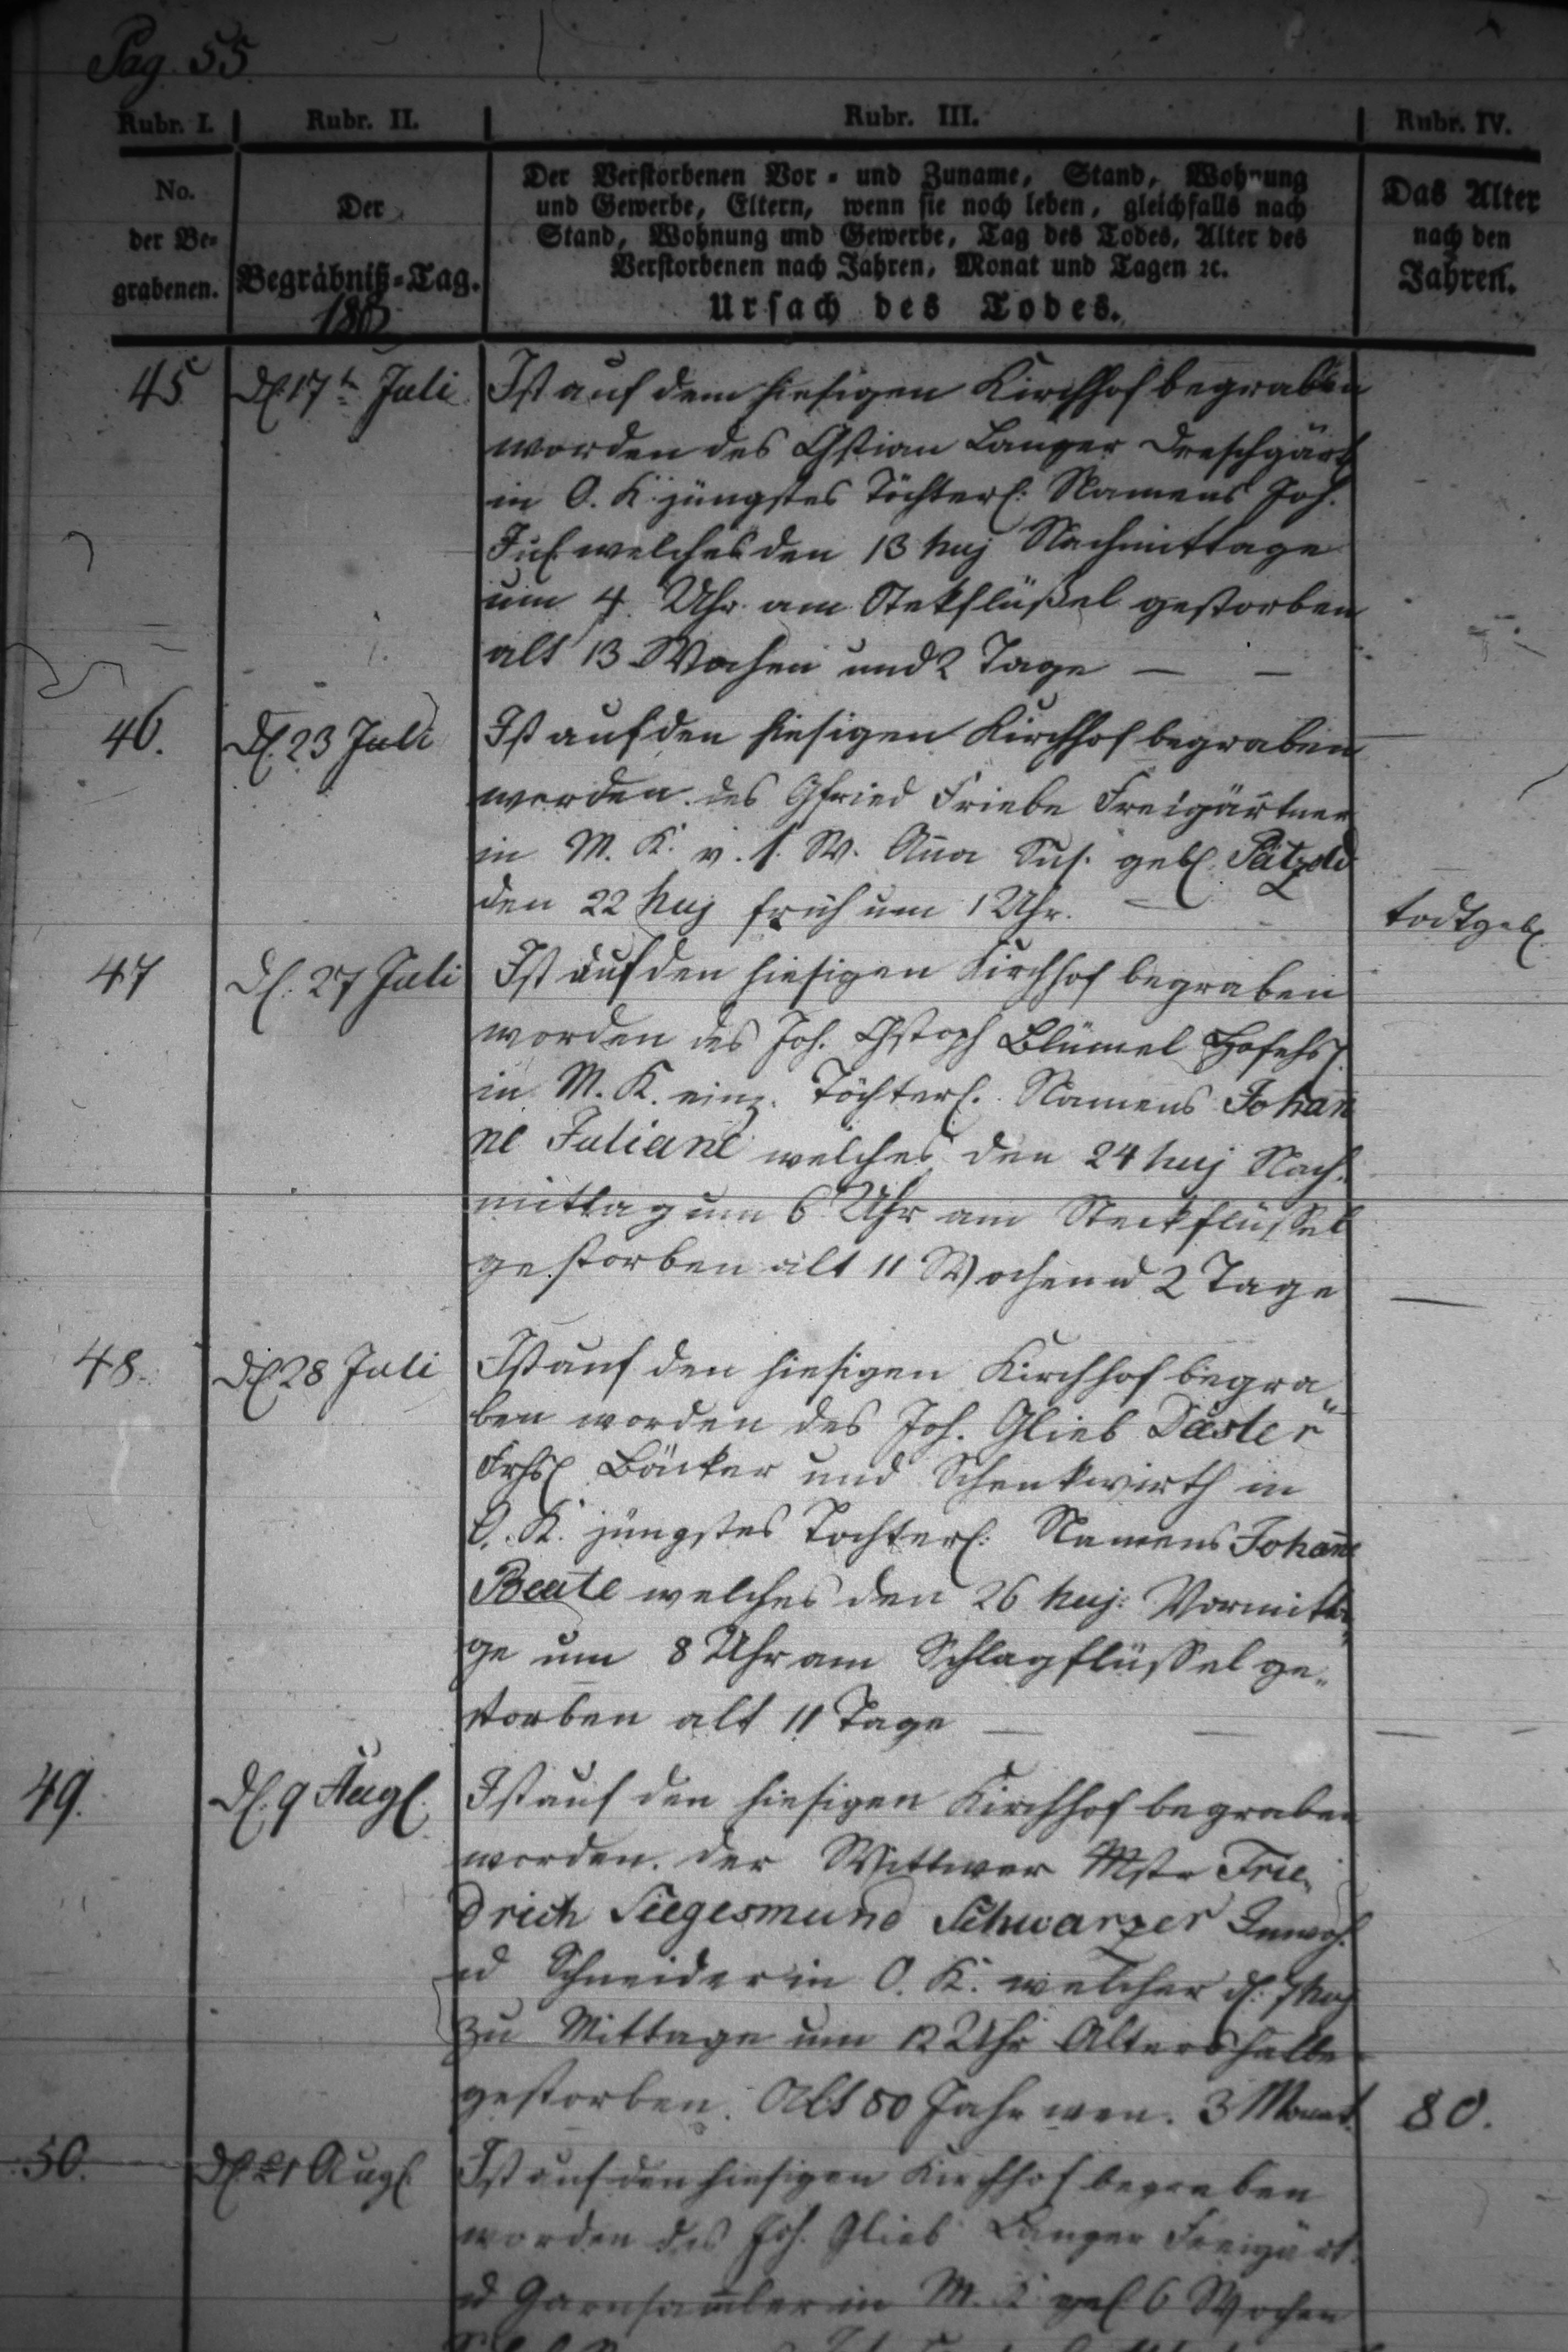 Pag. 55.
Rubr. I. Rubr. II. Rubr. III. Rubr. IV.
No.
der Be-
grabenen.
Der
Begräbniß-Tag.
Der Verstorbenen Vor- und Zuname, Stand, Wohnung
und Gewerbe, Eltern, wenn sie noch leben, gleichfalls nach
Stand, Wohnung und Gewerbe, Tag des Todes, Alter des
Verstorbenen nach Jahren, Monat und Tagen ꝛc.
Ursach des Todes.
Das Alter
nach den
Jahren.
45 d. 17t Juli Ist auf dem hiesigen Kirchhof begraben
worden des Chstian Langer Dreschgärt
in O. K. jüngstes Töchterl: Namens Joh.
Jul. welches den 13 huj Nachmittage
um 4 Uhr am Stekflüßel gestorben
alt 13 Wochen und 2 Tage — —
46. d. 23 Juli Ist auf den hiesigen Kirchhof begraben
worden des Gfried Friebe Freigärtner
in M. K. v. s. W. Aña Sus. geb. Pätzold
den 22 huj früh um 1 Uhr. — todtgeb.
47 d. 27 Juli Ist auf den hiesigen Kirchhof begraben
worden des Joh. Chstoph Blümel
in M. K. einz. Töchterl. Namens Johañ
ne Juliane welches den 24 huj Nach-
mittag um 6 Uhr am Steckflüssel
gestorben alt 11 Wochen u 2 Tage —
48. d. 28 Juli Ist auf den hiesigen Kirchhof begra"
ben worden des Joh. Glieb Däster
Frhsl Bäcker und Schenkwirth in
O. K. jüngstes Tochterl: Namens Johañe
Beate welches den 26 huj: Vormitta"
ge um 8 Uhr am Schlagflüssel ge"
storben alt 11 Tage — —
49. d. 9 Aug. Ist auf den hiesigen Kirchhof begraben
worden. der Wittwer Mstr Frie"
drich Siegesmund Schwarzer Inwoh.
u Schneider in O. K. welcher d. 7 huj
zu Mittage um 12 Uhr Altershalber
gestorben. Alt 80 Jahr wen. 3 Monat. 80.
50. d. 21 Aug. Ist auf den hiesigen Kirchhof begraben
worden des Joh. Glieb Langer Freigärt.
u Garnsam̄ler in M. K. 6 Wochen